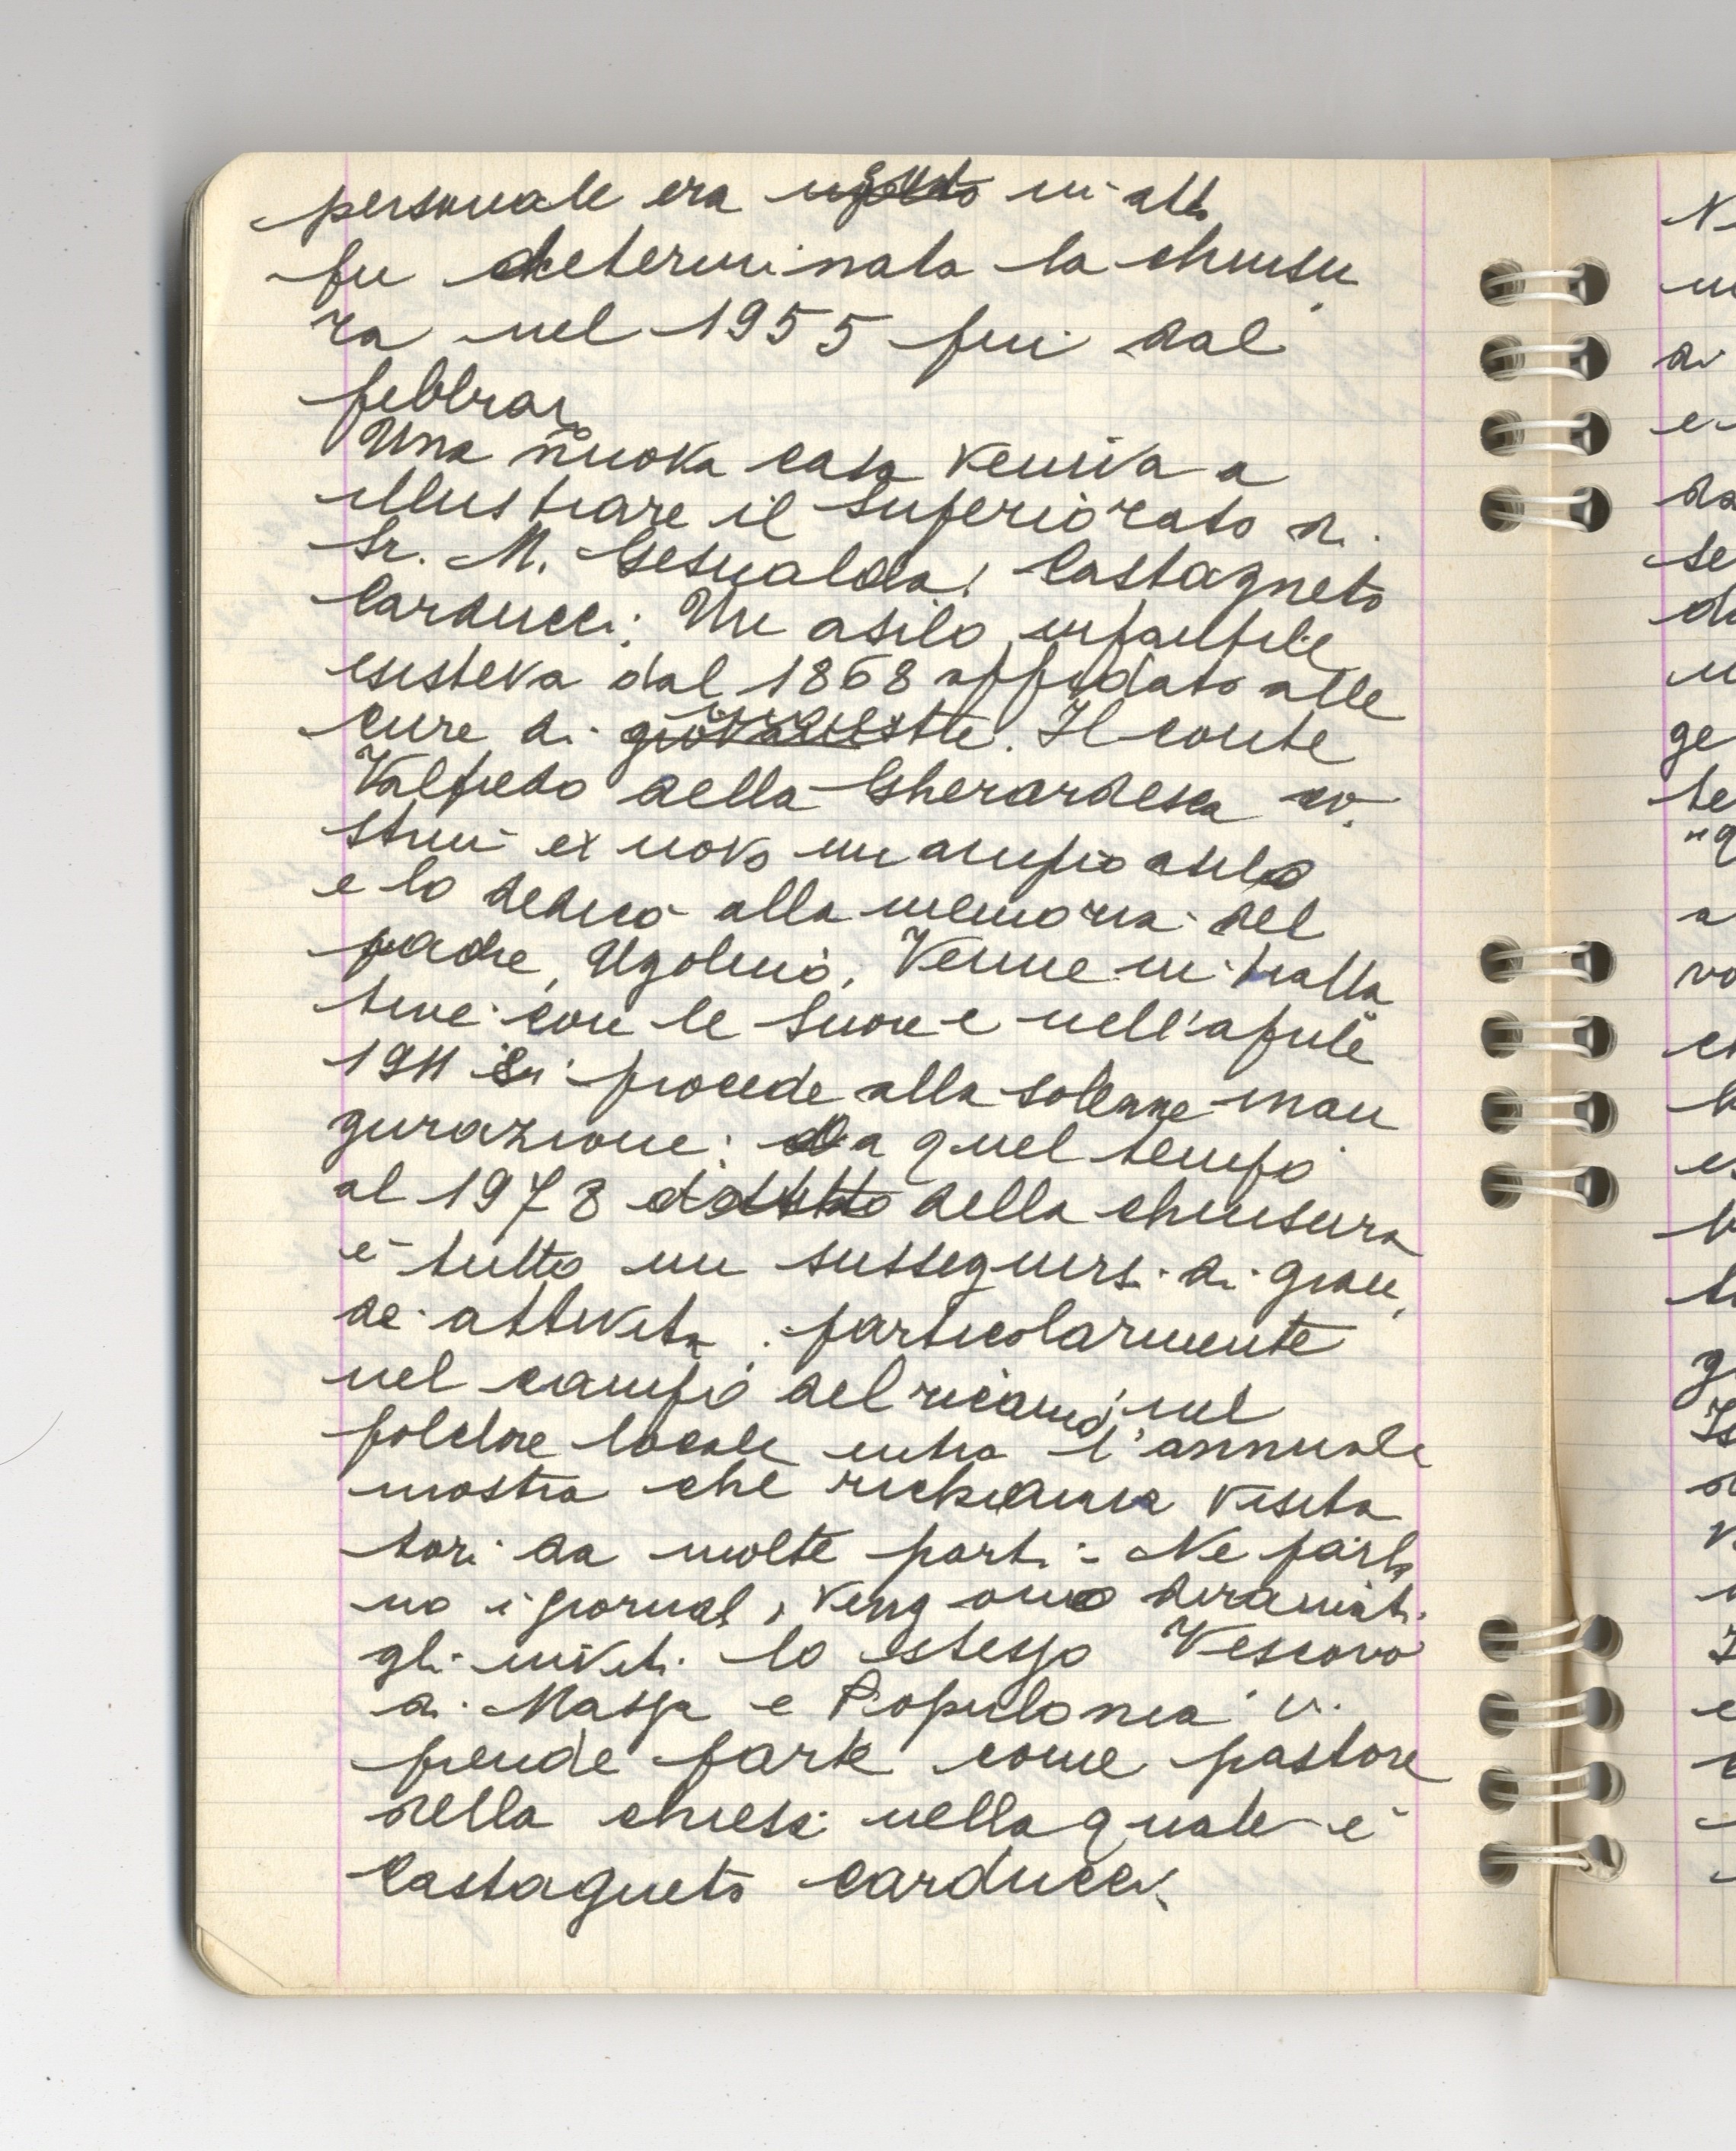 personale era in atto
fu determinata la chiusu
ra nel 1955 fin dal
febbraio
Una nuova casa veniva a
illustrare il Superiorato di
Sr. M. Gesualda: Castagneto
Carducci: Un asilo infantile
esisteva dal 1868 affidato alle
cure di Il conte
Valfredo della Gherardesca co-
struì ex novo un ampio asilo
e lo dedicò alla memoria del
padre, Ugolino. Venne in tratta
tive con le Suore e nell'aprile
1911 si procede alla solenne inau
gurazione: da quel tempo
al 1978 della chiusura
è tutto un susseguirsi di gran
de attività: particolarmente
nel campo del ricamo; nel
folclore locale entra l'annuale
mostra che richiama visita
tori da molte parti - Ne parla
no i giornali, vengono diramati
gli inviti lo stesso Vescovo
di Massa e Populonia vi
prende parte come pastore
della chiesa nella quale è
Castagneto Carducci.
Ne
da
se
ge
te
vo